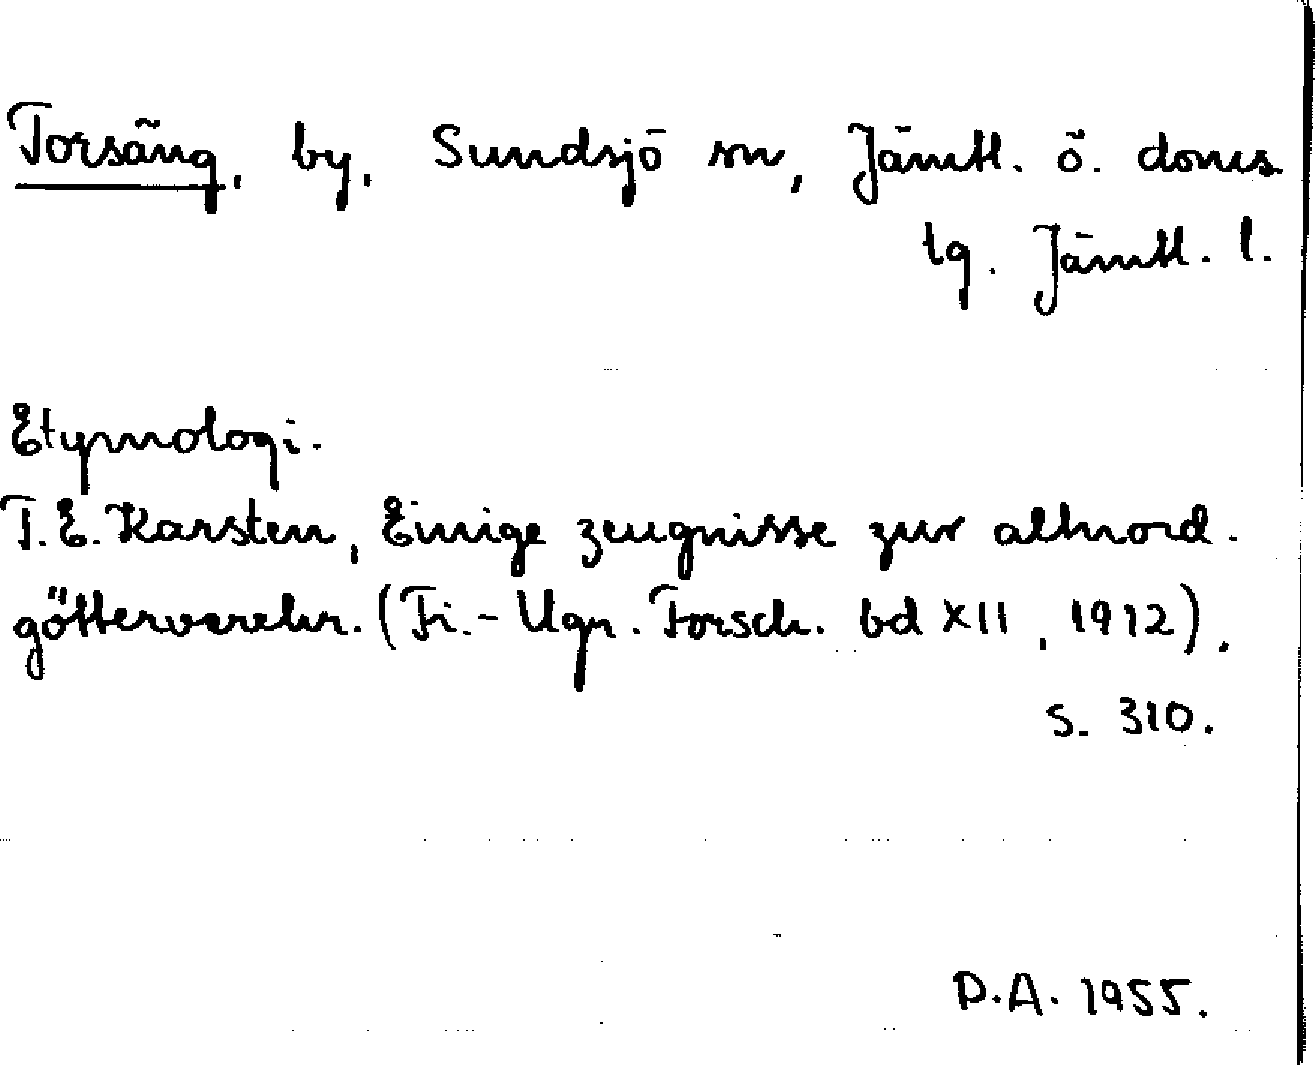 Torsäng, by, Sundsjö sn, Jämtl. ö. doms
tg. Jämtl. l.
Etymologi.
T.E. Karsten, Einige zeugnisse zur altnord.
götterverehr. (Fi.-Ugr. Forsch. bd XII, 1912).
s. 310.
D.A. 1955.